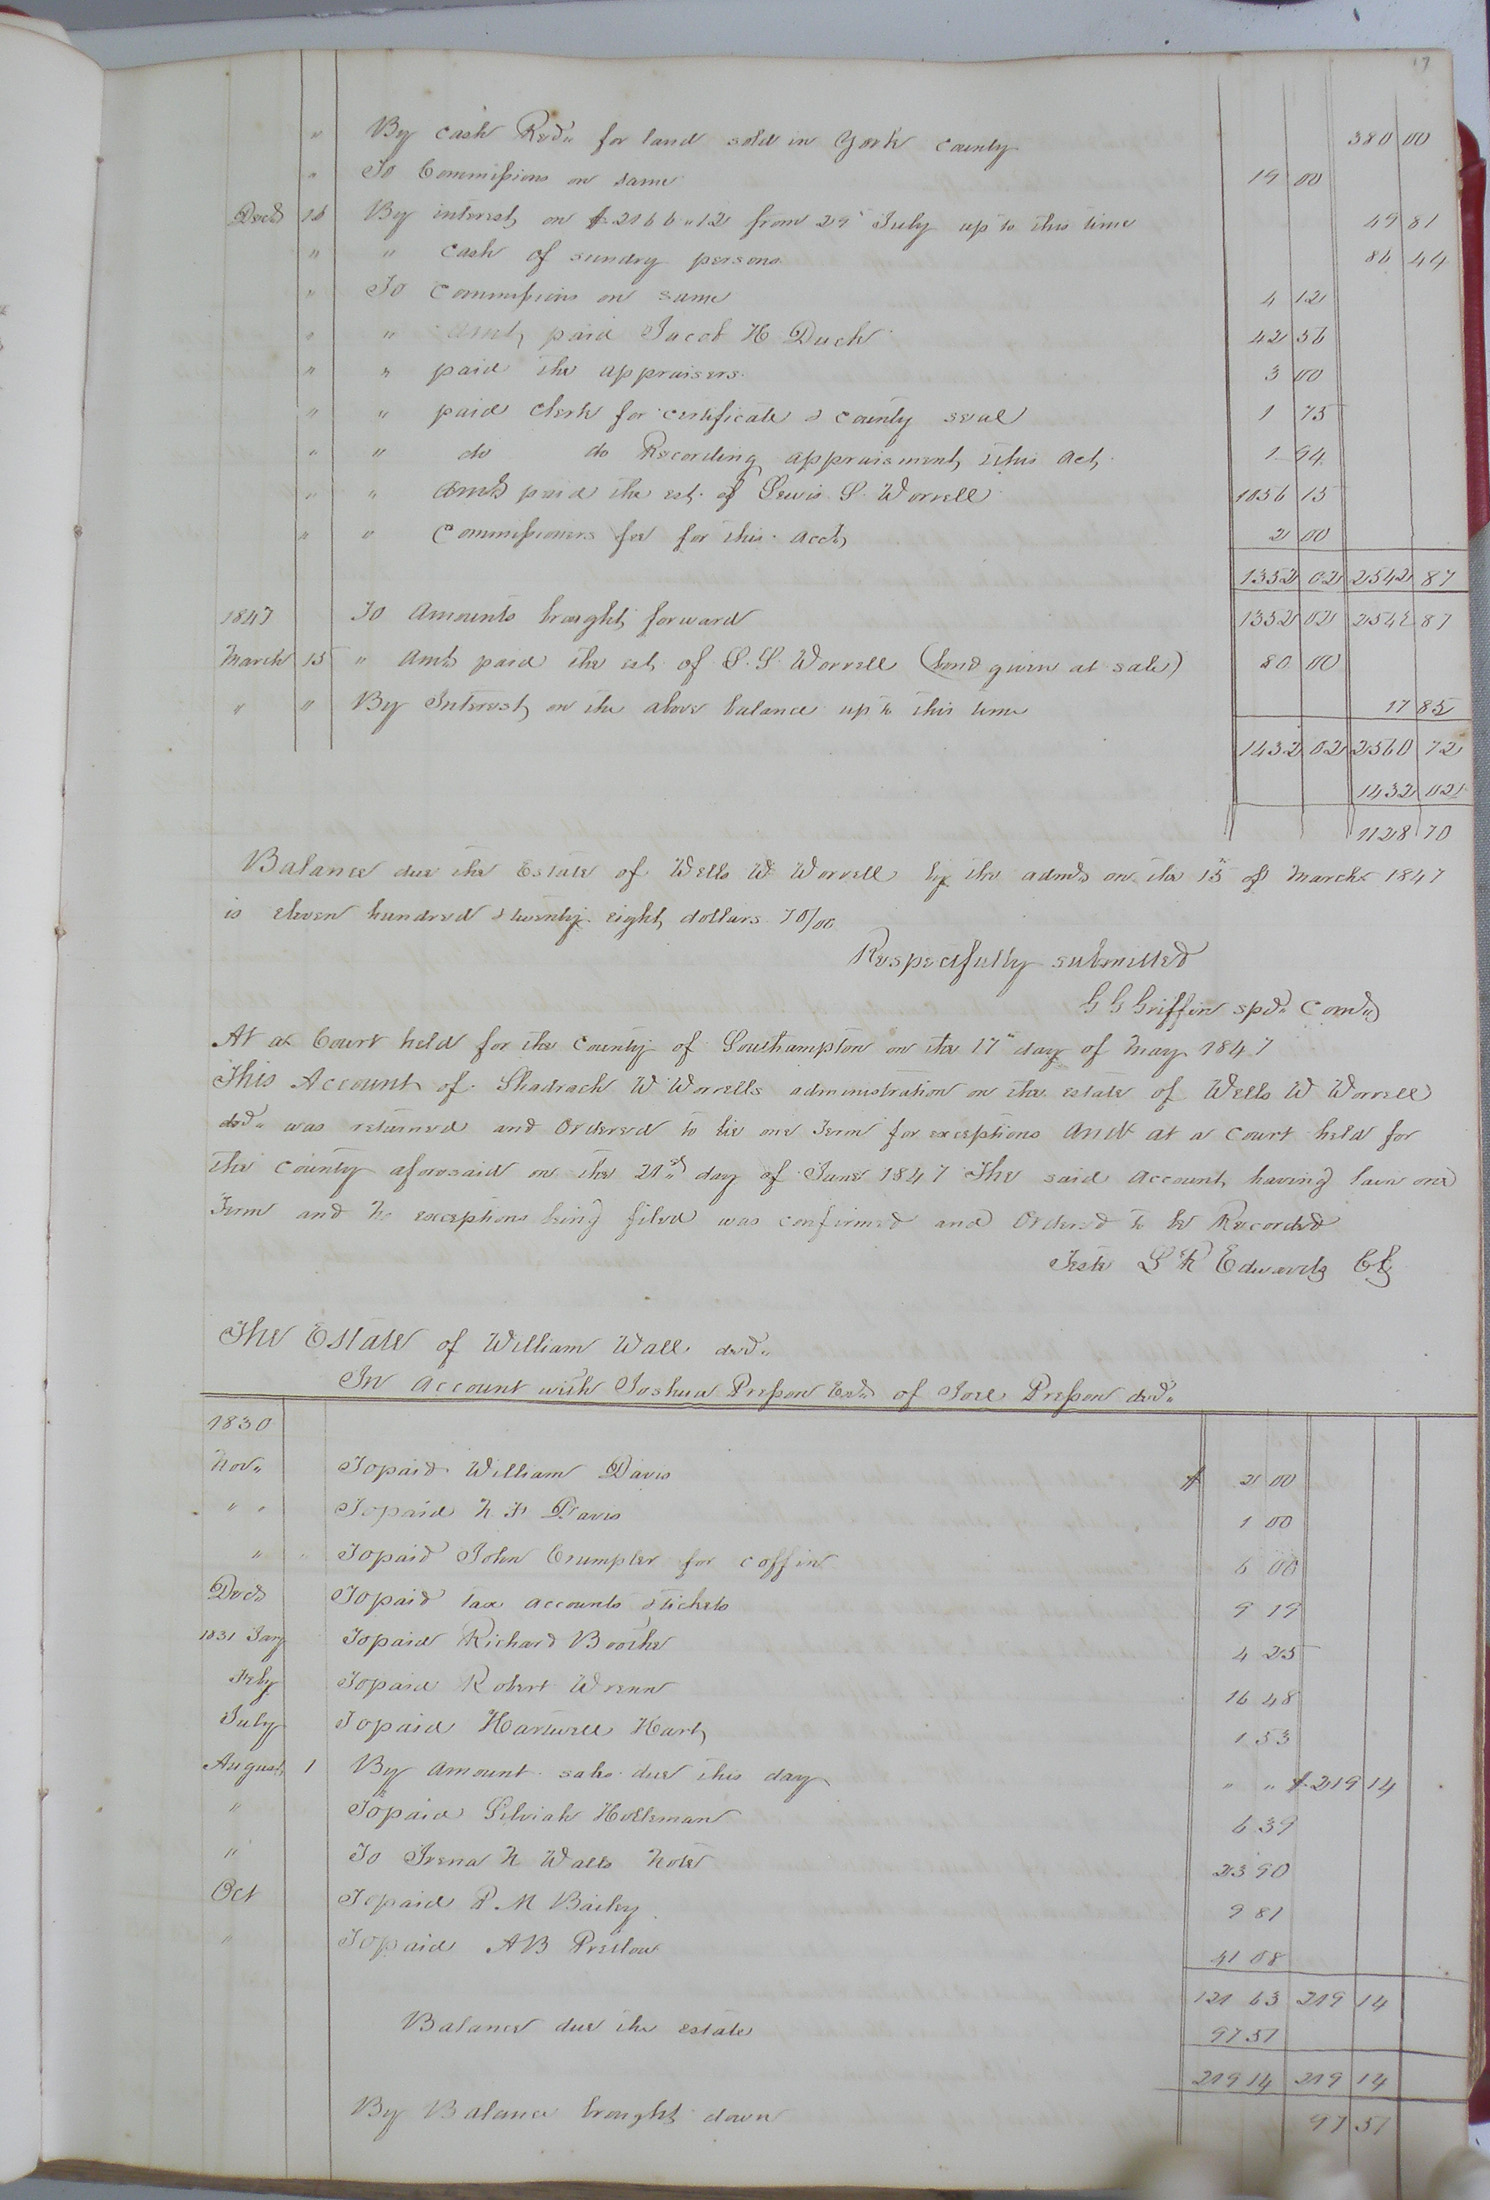 17
" By cash Recd. for land sold in York county 380 00
" To Commissions on same 19 00
Decr 16 By interest on $2166.12 from 29th July up to this time 49 81
" " cash of sundry persons 86 44
" To commissions on same 4 12
" " Amt paid Jacob H Duck 42 56
" " paid the appraisers 3 00
" " paid clerk for certificate & county seal 1 75
" " do do Recording appraisment & this Act 1 94
" " Amt paid the est. of Lewis S. Worrell 1056 15
" " Commissioners fee for this acct 2 00
1352 02 2542 87
1847 To Amounts brought forward 1352 02 2542 87
March 15 " Amt paid the est of L. S. Worrell (bond given at sale) 80 00
" " By Interest on the above balance up to this time 17 85
1432 02 2560 72
1432 02
1128 70
Balance due the Estate of Wells W Worrell by the admr on the 15th of March 1847
is eleven hundred & twenty eight dollars 70/00
Respectfully submitted
G G Griffin spd. Comr
At a Court held for the County of Southampton on the 17th day of May 1847
This Account of Shadrach W Worrells administration on the estate of Wells W Worrell
decd. was returned and Ordered to lie one Term for exceptions And at a Court held for
the County aforesaid on the 21st day of June 1847 The said Account having lain one
Term and no exceptions being filed was confirmed and Ordered to be Recorded
Teste L R Edwards Clk
The Estate of William Wall decd.
In Account with Joshua Presson Exr. of Joel Presson decd.
1830
Nov. To paid William Davis $ 2 00
" " To paid N. F. Davis 1 00
" " To paid John Crumpler for coffin 6 00
Decr To paid tax accounts & tickets 9 19
1831 Jany To paid Richard Boothe 4 25
Feby To paid Robert Wrenn 16 48
July To paid Hartwell Hart 1 53
August 1 By Amount sales due this day " " $ 219 14
" To paid Silviah Holleman 6 39
" To Irena N Walls Note 23 90
Oct To paid P M Bailey 9 81
" To paid A B Preston 41 08
121 63 219 14
Balance due the estate 97 51
219 14 219 14
By Balance brought down 97 51